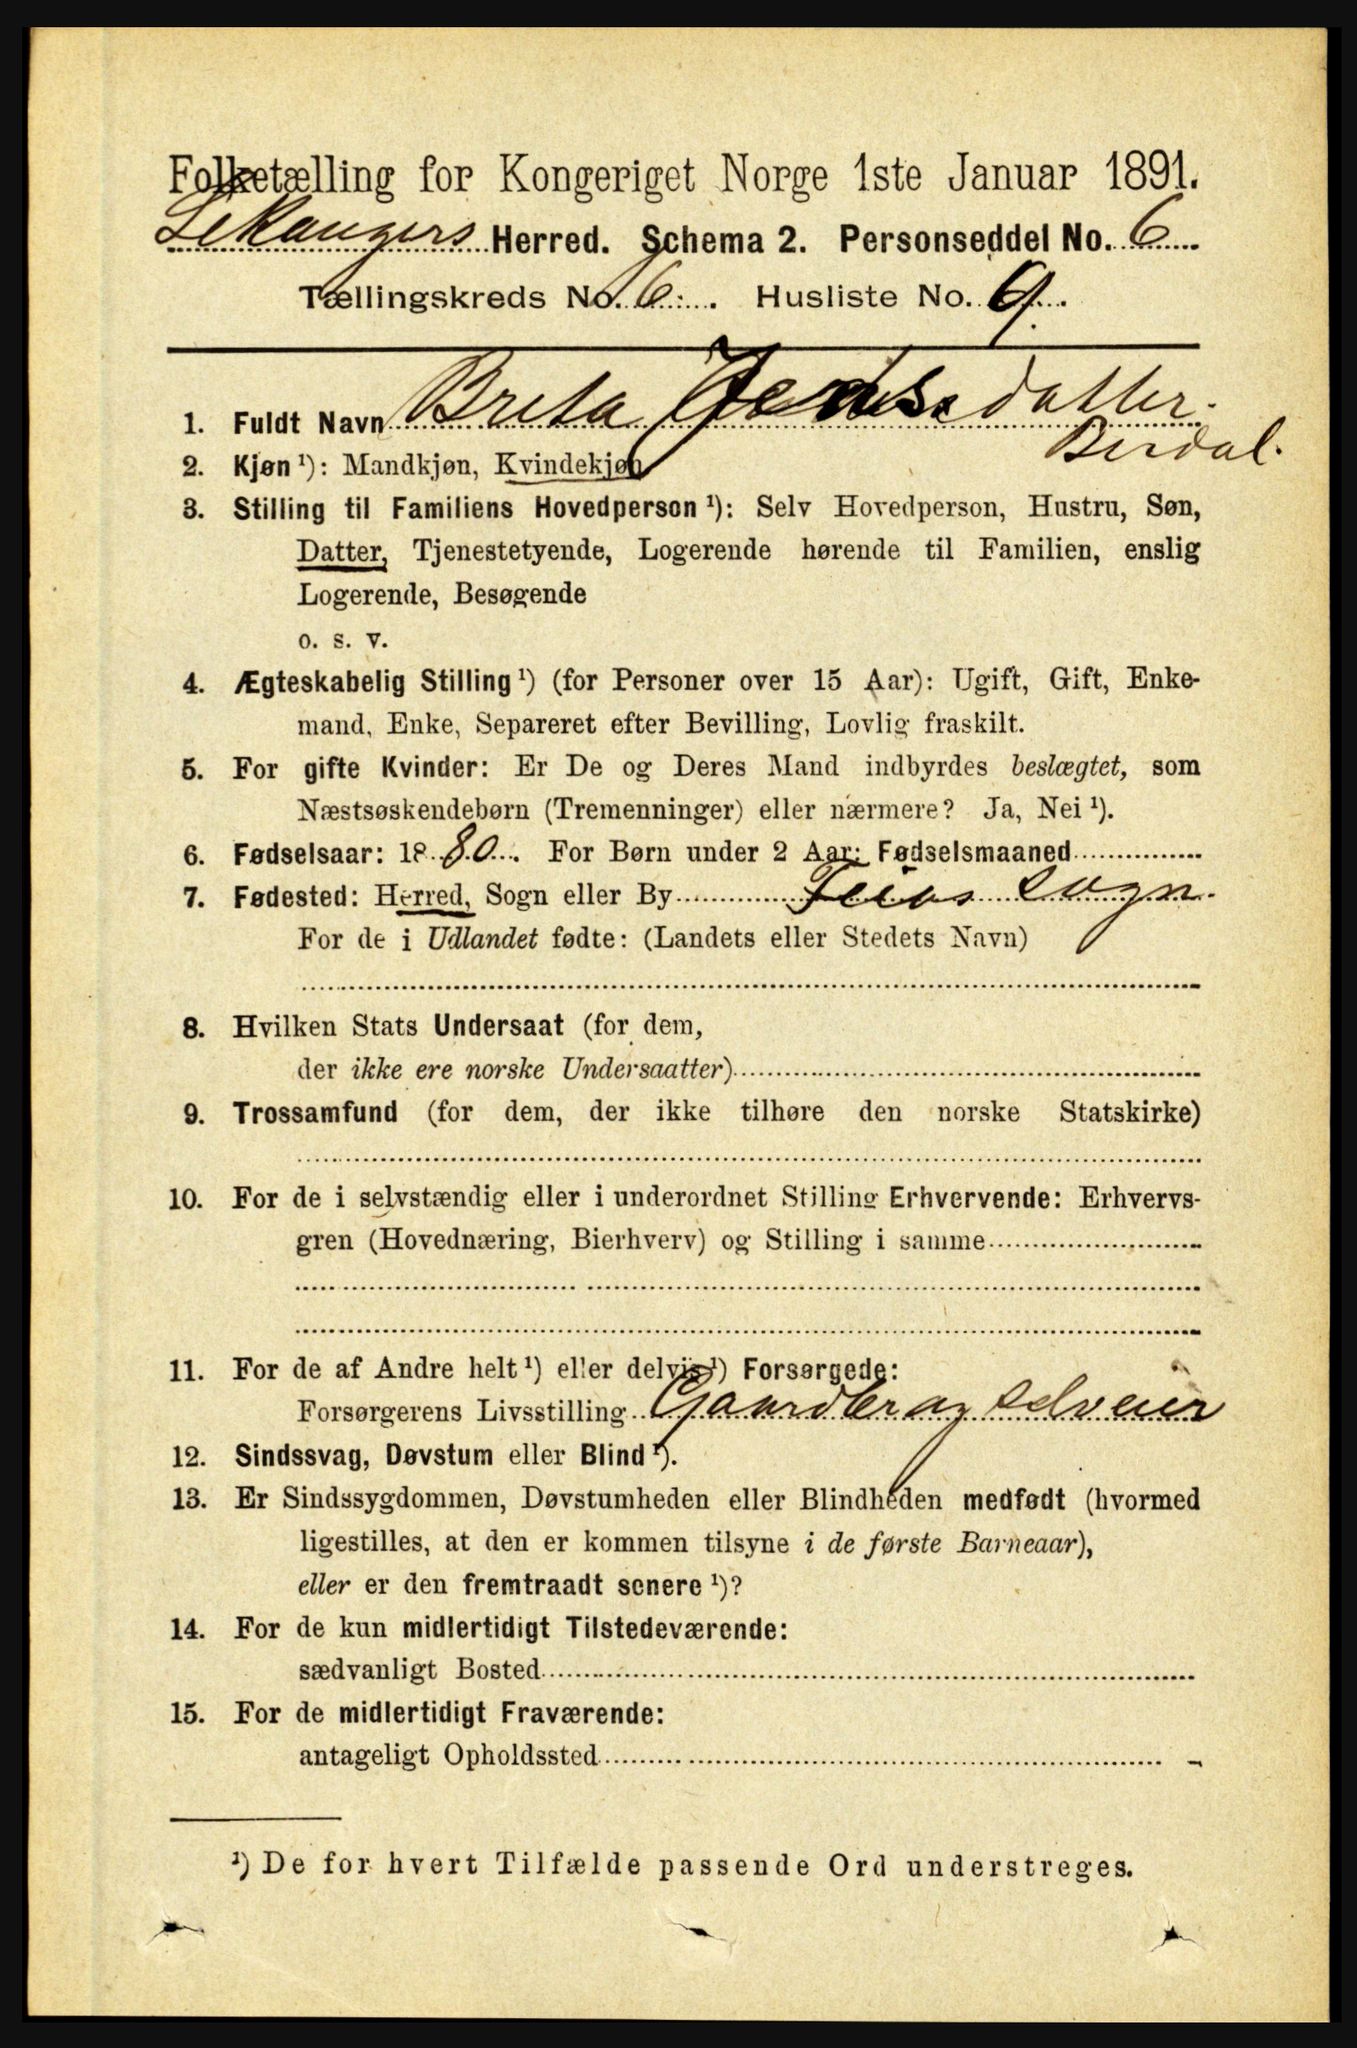 Folketælling for Kongeriget Norge 1ste Januar 1891.
Lekangers Herred. Schema 2. Personseddel No. 6
Tællingskreds No. 6. Husliste No. 9.
1. Fuldt Navn Brita Jensdatter
Berdal.
2. Kjøn ¹): Mandkjøn, Kvindekjøn
3. Stilling til Familiens Hovedperson ¹): Selv Hovedperson, Hustru, Søn,
Datter, Tjenestetyende, Logerende hørende til Familien, enslig
Logerende, Besøgende
o. s. v.
4. Ægteskabelig Stilling ¹) (for Personer over 15 Aar): Ugift, Gift, Enke-
mand, Enke, Separeret efter Bevilling, Lovlig fraskilt.
5. For gifte Kvinder: Er De og Deres Mand indbyrdes beslægtet, som
Næstsøskendebørn (Tremenninger) eller nærmere? Ja, Nei ¹).
6. Fødselsaar: 1880. For Børn under 2 Aar: Fødselsmaaned
7. Fødested: Herred, Sogn eller By Feios sogn.
For de i Udlandet fødte: (Landets eller Stedets Navn)
8. Hvilken Stats Undersaat (for dem,
der ikke ere norske Undersaatter)
9. Trossamfund (for dem, der ikke tilhøre den norske Statskirke)
10. For de i selvstændig eller i underordnet Stilling Erhvervende: Erhvervs-
gren (Hovednæring, Bierhverv) og Stilling i samme
11. For de af Andre helt ¹) eller delvis ¹) Forsørgede:
Forsørgerens Livsstilling Gaardbr og selveier
12. Sindssvag, Døvstum eller Blind ¹).
13. Er Sindssygdommen, Døvstumheden eller Blindheden medfødt (hvormed
ligestilles, at den er kommen tilsyne i de første Barneaar),
eller er den fremtraadt senere ¹)?
14. For de kun midlertidigt Tilstedeværende:
sædvanligt Bosted
15. For de midlertidigt Fraværende:
antageligt Opholdssted
¹) De for hvert Tilfælde passende Ord understreges.